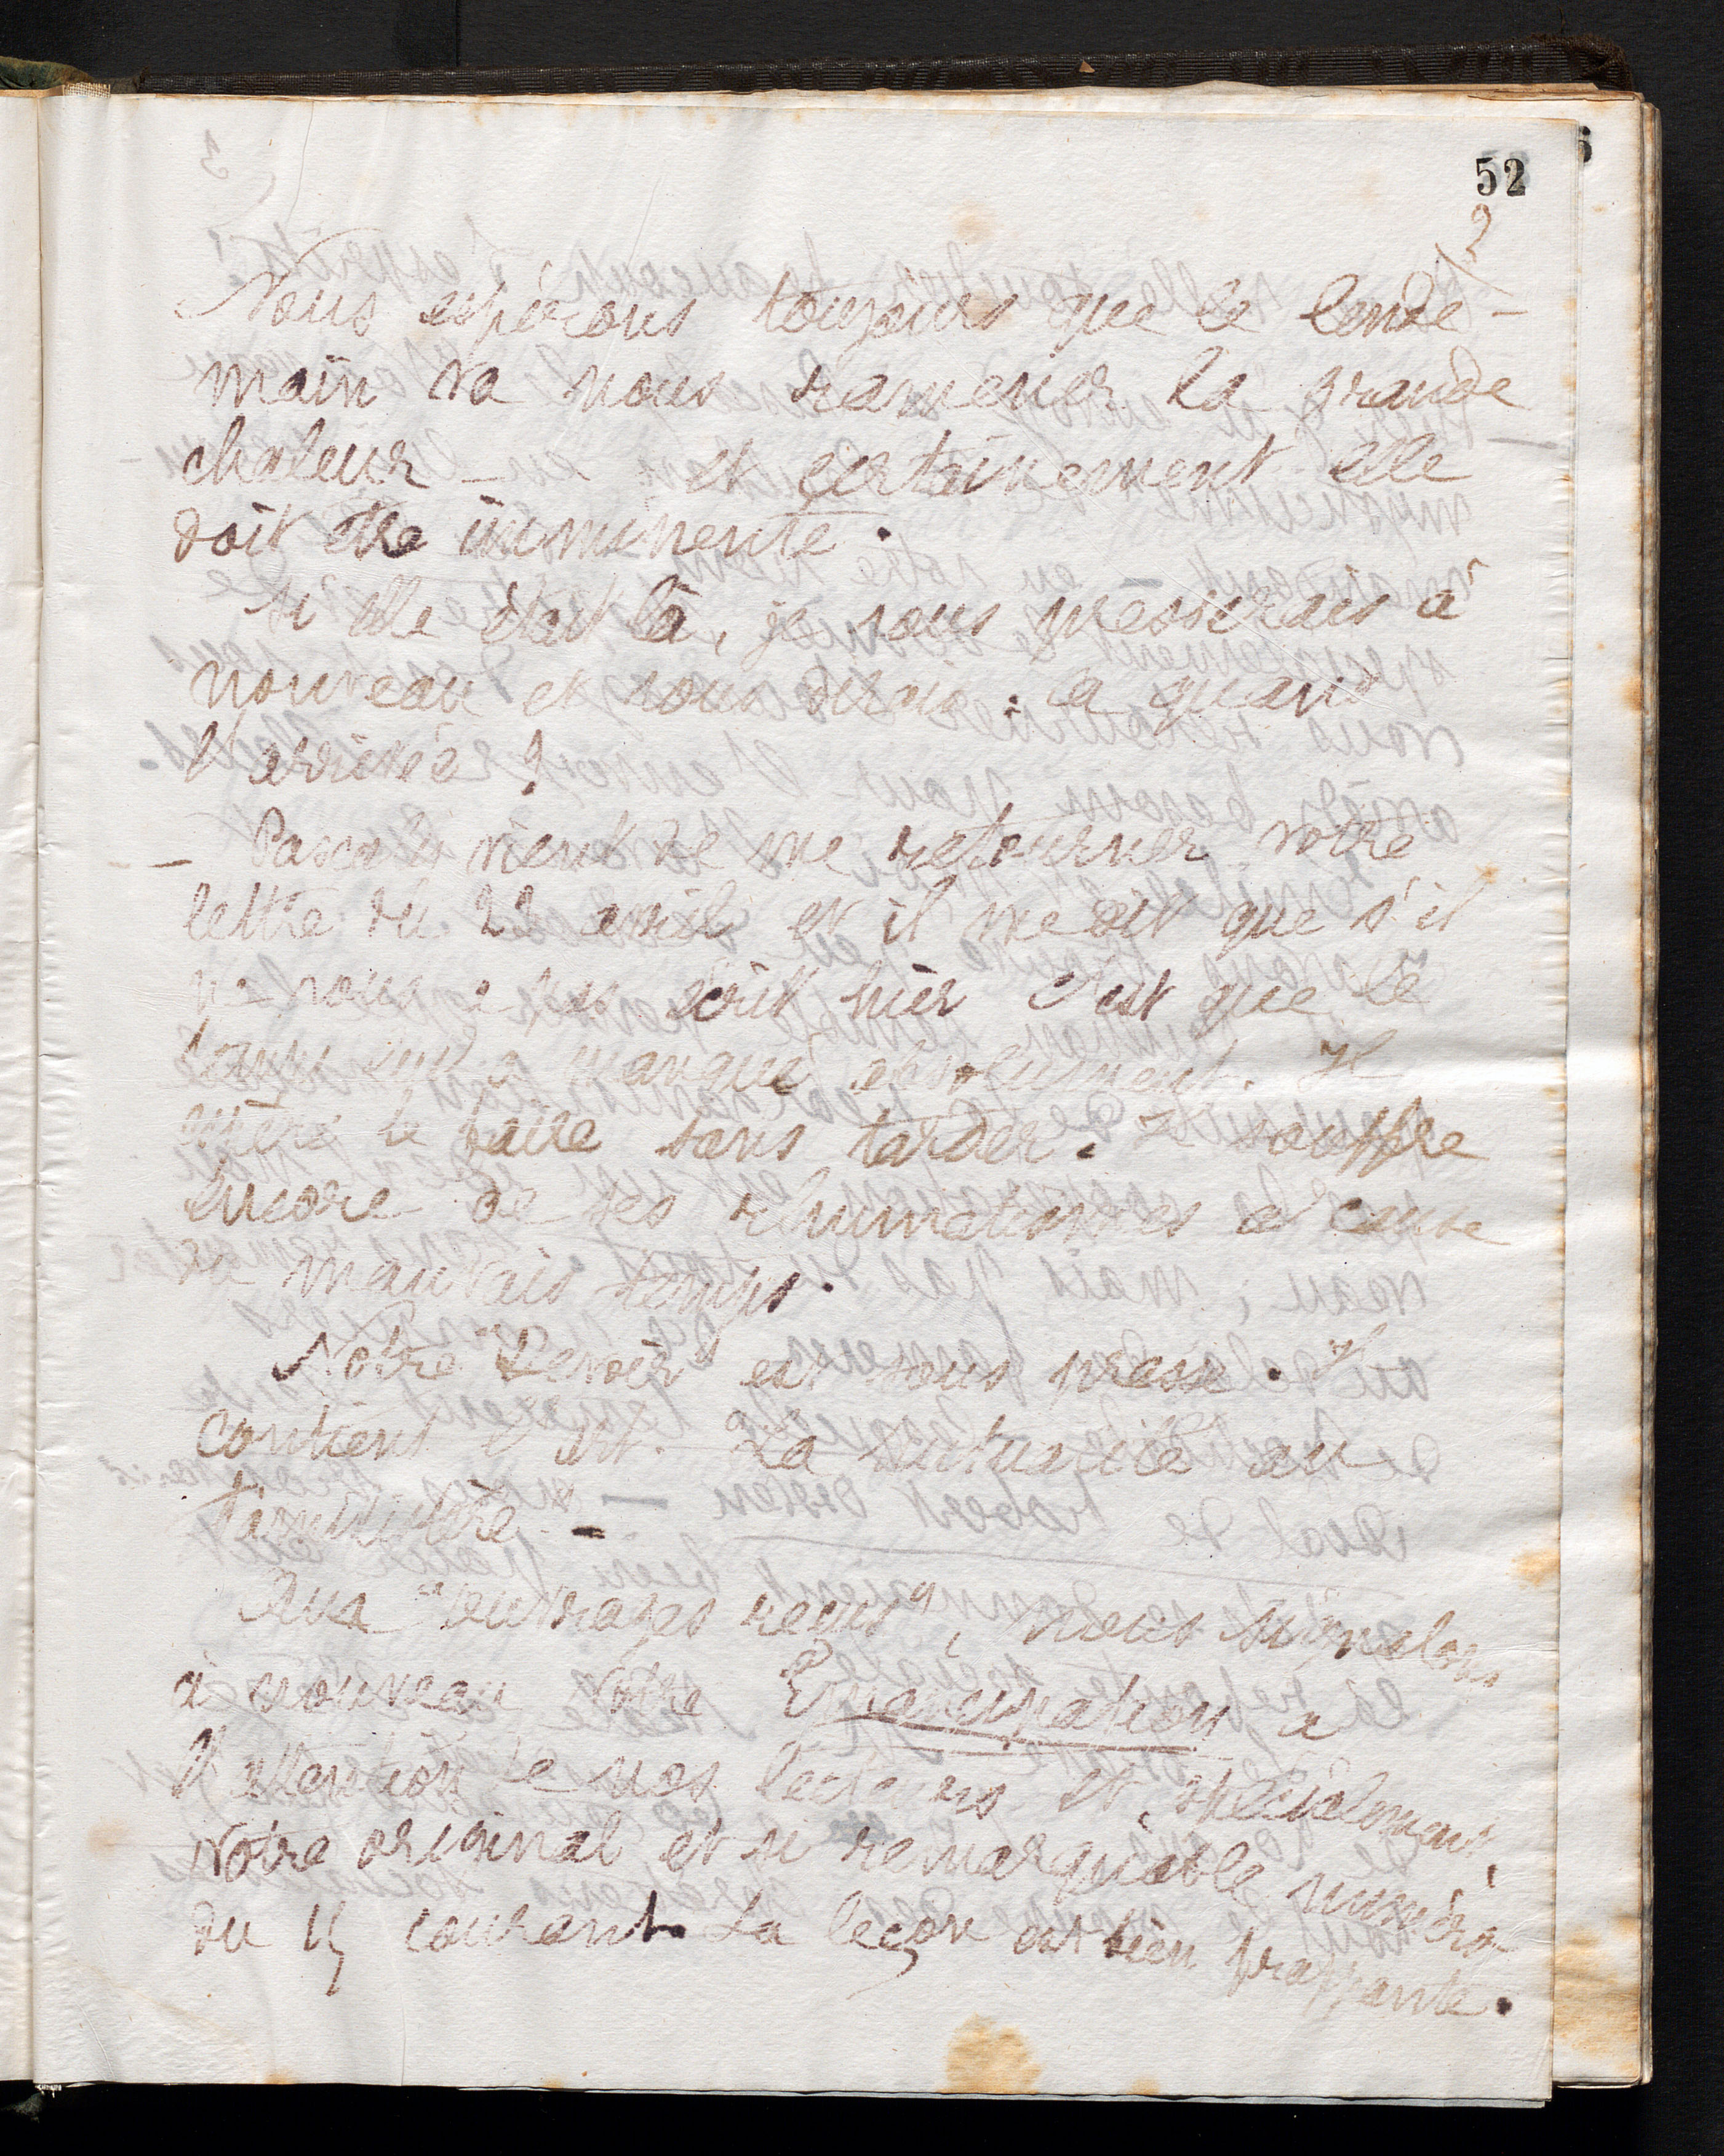 52
2
Nous espérons toujours que le lende-
main va nous ramener la grande
chaleur - et certainement elle
doit être imminente.
Si elle était là, je vous presserais à
nouveau et vous dirais : à quand
l'arrivée ?
- Pascaly vient de me retourner votre
lettre du 22 avril et il me dit que s'il
ne vous a pas écrit hier c'est que le
temps lui a manqué absolument. Il
espère le faire sans tarder. Il souffre
encore de ses rhumatismes à cause
du mauvais temps.
Notre "Devoir" est sous presse. Il
contient l'art. "La Mutualité au
Familistère" -
Aux "ouvrages reçus", nous signalons
à nouveau votre Emancipation à
l'attention de nos lecteurs et spécialement
votre original et si remarquable numéro
du 15 courant. La leçon est bien frappante.